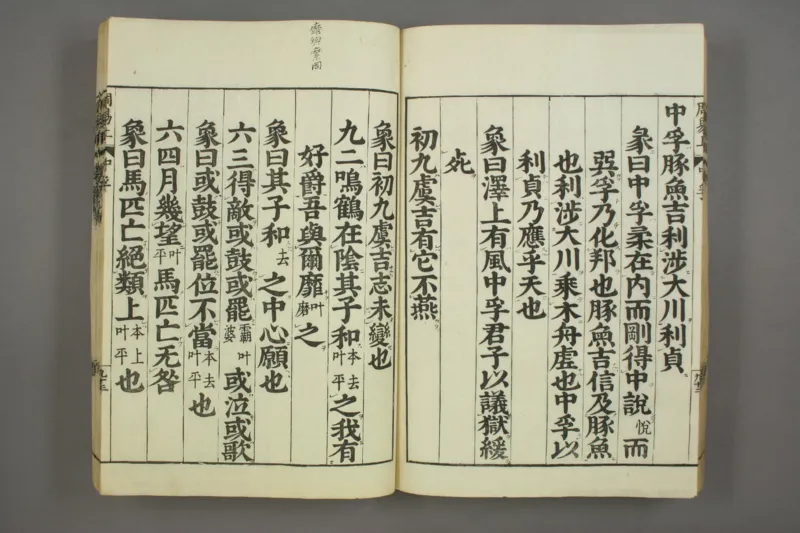 中孚豚魚吉利涉大川利貞
彖曰中孚柔在内而剛得中說悅而
巽孚乃化邦也豚魚吉信及豚魚
也利涉大川乘木舟虛也中孚以
利貞乃應乎天也
象曰澤上有風中孚君子以議獄緩
死
初九虞吉有它不燕
象曰初九虞吉志未變也
九二鳴鶴在陰其子和本去叶平之我有
好爵吾與爾靡叶磨之
象曰其子和去之中心願也
六三得敵或鼓或罷霸叶婆或泣或歌
象曰或鼓或罷位不當本去叶平也
六四月幾望叶平馬匹亡无咎
象曰馬匹亡絕類上本上叶平也